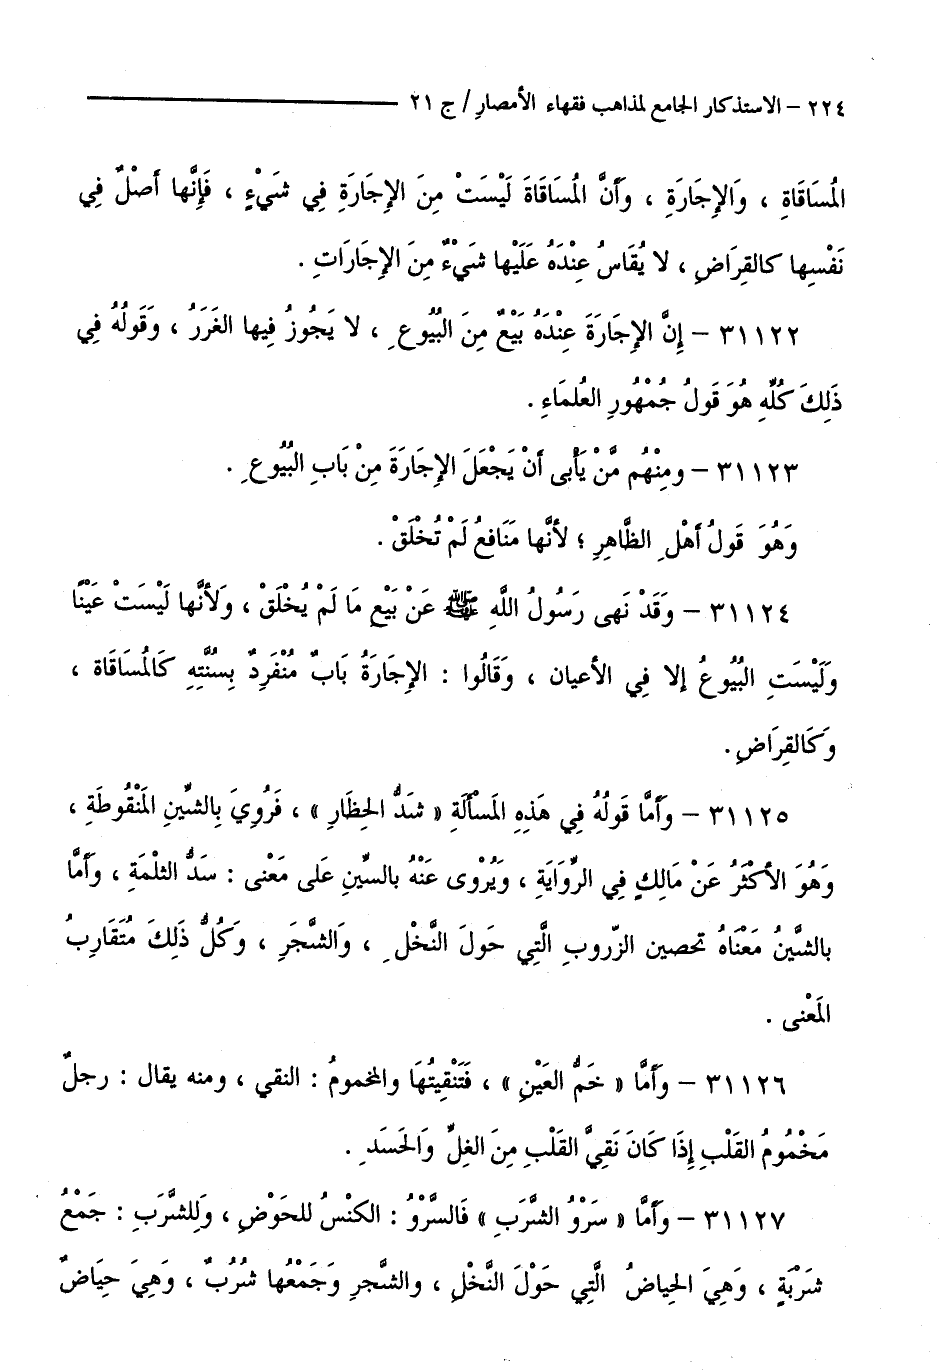 ٢٢٤ – الاستذكار الجامع لمذاهب فقهاء الأمصارِ / ج ٢١
المُسَاقَاةِ ، وَالإِجَارَةِ ، وَأَنَّ المُسَاقَاةَ لَيْسَتْ مِنَ الإِجَارَةِ فِي شَيْءٍ ، فَإِنَّها أَصْلٌ فِي
نَفْسِها كالقِرَاضِ ، لا يُقَاسُ عِنْدَهُ عَلَيْها شَيْءٌ مِنَ الإِجَارَاتِ .
٣١١٢٢ – إِنَّ الإِجَارَةَ عِنْدَهُ بَيْعٌ مِنَ البُيُوعِ ، لا يَجُوزُ فِيها الغَرَرُ ، وَقَولُهُ فِي
ذَلِكَ كُلِّهِ هُوَ قَولُ جُمْهُورِ العُلمَاءِ .
٣١١٢٣ – ومِنْهُم مَّنْ يَأْبى أَنْ يَجْعَلَ الإِجَارَةَ مِنْ بَابِ البُيُوعِ .
وَهُوَ قَولُ أَهْلِ الظَّاهِرِ ؛ لأَنَّها مَنَافعُ لَمْ تُخْلَقْ .
٣١١٢٤ – وَقَدْ نَهى رَسُولُ اللَّهِ ﷺ عَنْ بَيْعِ مَا لَمْ يُخْلَقْ ، وَلأَنَّها لَيْسَتْ عَيْنًا
وَلَيْسَتِ البُيُوعُ إلا فِي الأعيان ، وَقَالُوا : الإِجَارَةُ بَابٌ مُنْفَرِدٌ بِسُنَّتِهِ كَالمُسَاقَاة ،
وَكَالقِرَاضِ .
٣١١٢٥ – وَأَمَّا قَولُهُ فِي هَذِهِ المَسْأَلَةِ « شَدُّ الحِظَارِ » ، فَرُوِيَ بِالشِّينِ المَنْقُوطَةِ ،
وَهُوَ الأَكْثَرُ عَنْ مَالِكٍ فِي الرِّوَايَةِ ، وَيُرْوى عَنْهُ بالسِّينِ عَلى مَعْنى : سَدُّ الثلْمَةِ ، وَأَمَّا
بالشَّينُ مَعْنَاهُ تحصين الزّروبِ الَّتِي حَولَ النَّخْلِ ، وَالشَّجَرِ ، وَكُلُّ ذَلِكَ مُتَقَارِبُ
المَعْنى .
٣١١٢٦ – وَأَمَّا « خَمُّ العَيْنِ » ، فَتَنْقِيتُهَا والمَخمومُ : النقي ، ومنه يقال : رجلٌ
مَخْمُومُ القَلْبِ إِذَا كَانَ نَقِيَّ القَلْبِ مِنَ الغِلِّ وَالحَسَدِ .
٣١١٢٧ – وَأَمَّا « سَرْوُ الشَّرَبِ » فَالسَّرْوُ : الكنْسُ للحَوْضِ ، وَلِلشَّرَبِ : جَمْعُ
شَرَبَةٍ ، وَهِيَ الحِياضُ الَّتِي حَوْلَ النَّخْلِ ، والشَّجرِ وَجَمْعُها شُرُبٌ ، وَهِيَ حِيَاضٌ